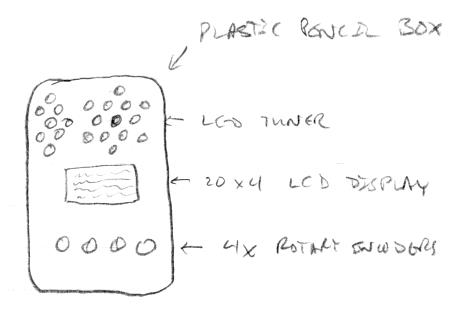 PLASTIC PENCIL BOX
LED TUNER
20x4 LCD DISPLAY
4x ROTARY ENCODERS